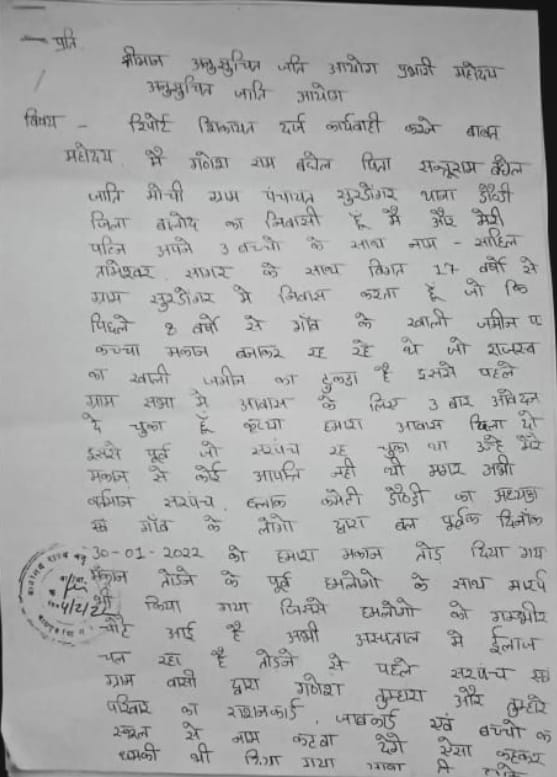 प्रति
श्रीमान अनुसुचित जाति आयोग प्रभारी महोदय
अनुसुचित जाति आयोग
विषय - रिपोर्ट शिकायत दर्ज कार्यवाही करने बाबत
महोदय, मै गणेश राम बघेल पिता सन्तुराम बघेल
जाति मोची ग्राम पंचायत सुरडोंगर थाना डौंडी
जिला बालोद का निवासी हूँ मै और मेरी
पत्नि अपने 3 बच्चो के साथ नाम - साहिल
तामेश्वर, सागर के साथ विगत 17 वर्षो से
ग्राम सुरडोंगर मे निवास करता हूँ जो कि
पिछले 8 वर्षो से गाँव के खाली जमीन प
कच्चा मकान बनाकर रह रहे थे जो राजस्व
का खाली जमीन का टुकडा है इससे पहले
ग्राम सभा मे आवास के लिए 3 बार आवेदन
दे चुका हूँ कृप्या हमारा आवास दिला दो
इससे पूर्व जो सरपंच रह चुका था उन्हे मेरे
मकान से कोई आपत्ति नही थी मगर अभी
वर्तमान सरपंच, ब्लाक कमेटी डौंडी का अध्यक्ष
एवं गाँव के लोगो द्वारा बल पूर्वक दिनाँक
30-01-2022 को हमारा मकान तोड दिया गय
मकान तोडने के पूर्व हमलोगो के साथ मारपी
भी किया गया जिससे हमलोगो को गम्भीर
चोटे आई है अभी अस्पताल मे ईलाज
चल रहा है तोडने से पहले सरपंच एवं
ग्राम वासी द्वारा गणेश तुम्हारा और तुम्हारे
परिवार का राशनकार्ड, जाबकार्ड एवं बच्चो के
स्कूल से नाम कटवा देंगे ऐसा कहकर
धमकी भी दिया गया